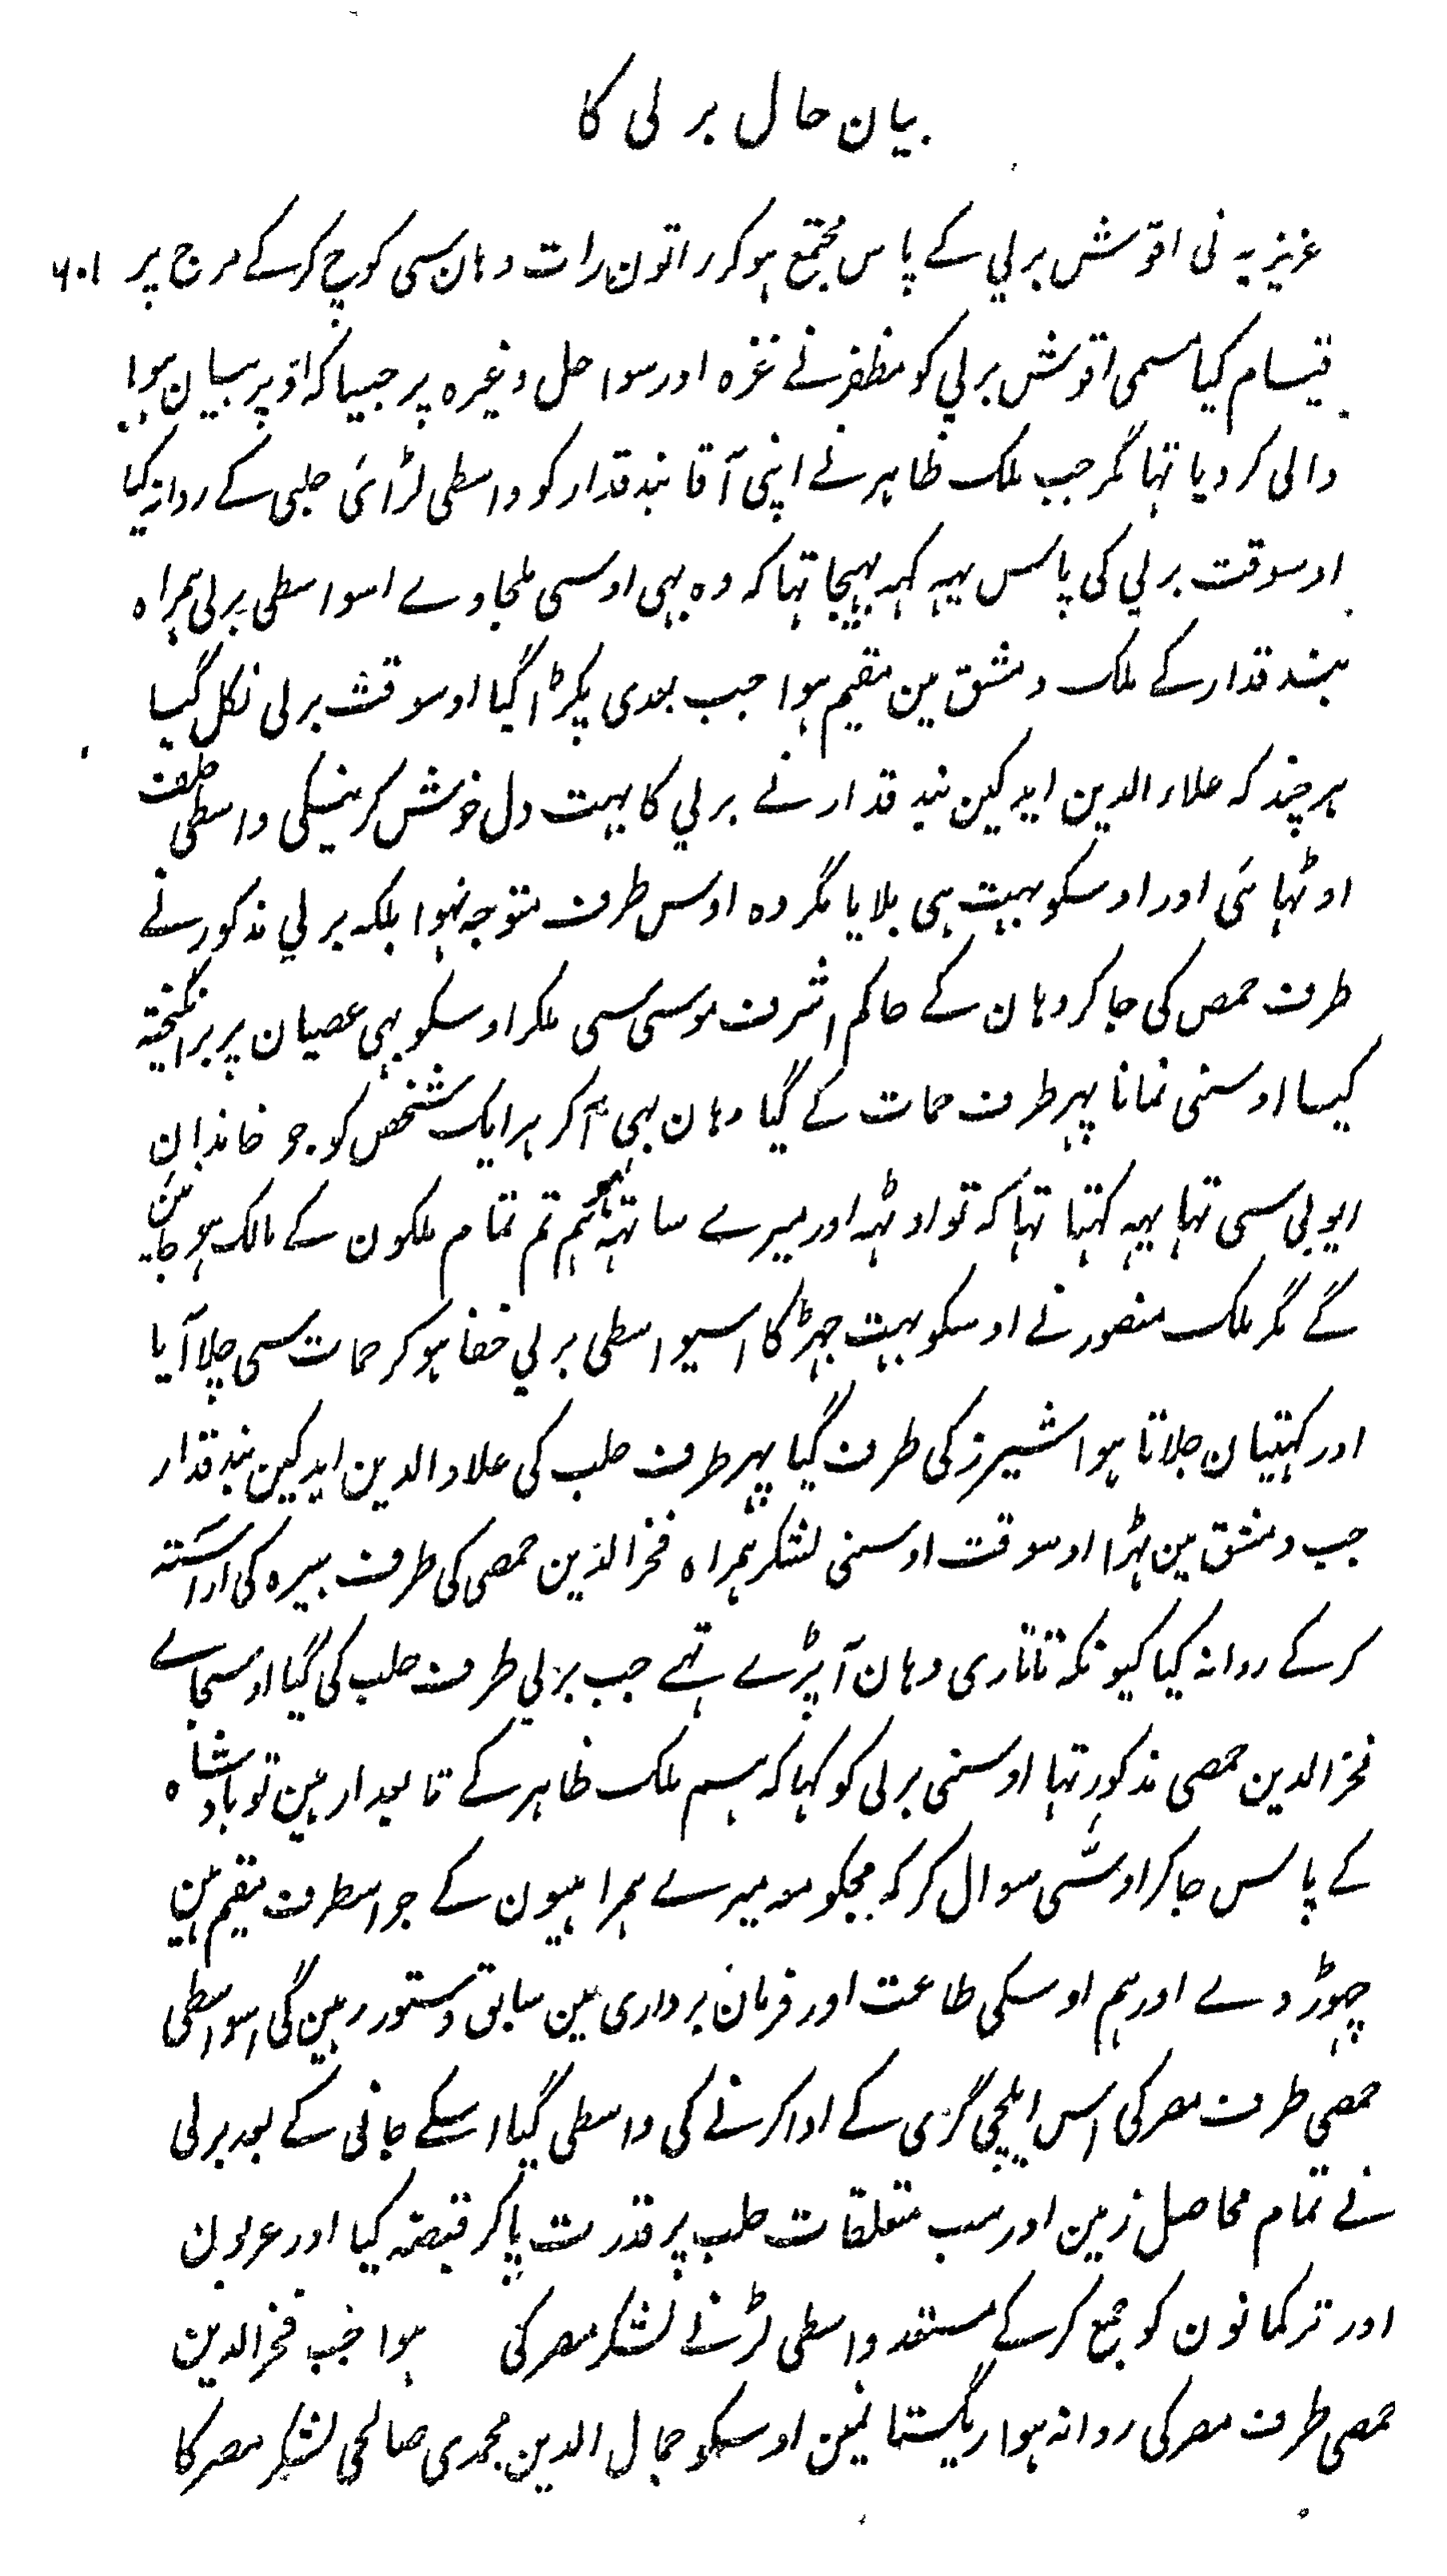 بیان حال برلی کا
عزیزیہ نی اقوش برلي کے پاس مجتمع ہو کر راتون رات وہان سی کوچ کر کے مرج پر ۶۰۱
قیام کیا مسمی اقوش برلي کو مظفر نے غزہ اور سواحل وغیرہ پر جیسا کہ اوپر بیان ہوا
والی کر دیا تہا مگر جب ملک ظاہر نے اپنی آقا بندقدار کو واسطی لڑائی حلبی کے روانہ کیا
اوسوقت برلي کی پاس یہہ کہہ بہیجا تہا کہ وہ بہی اوسی ملجاوے اسواسطی برلی ہمراہ
بندقدار کے ملک دمشق مین مقیم ہوا جب بعدی پکڑا گیا اوسوقت برلی نکل گیا
ہر چند کہ علاء الدین ایدکین بندقدار نے برلي کا بہت دل خوش کرنیکی واسطی حلف
اوٹہائی اور اوسکو بہت ہی بلایا مگر وہ اوس طرف متوجہ نہوا بلکہ برلي مذکور نے
طرف حمص کی جا کر وہان کے حاکم اشرف موسی سی ملکر اوسکو بہی عصیان پر برانگیختہ
کیا اوسنی نمانا پہر طرف حمات کے گیا وہان بہی آکر ہر ایک شخص کو جو خاندان
ایوبی سی تہا یہہ کہتا تہا کہ تو اوٹہہ اور میرے ساتہہ ہو ہم تم تمام ملکون کے مالک ہو جائین
گے مگر ملک منصور نے اوسکو بہت جہڑکا اسیواسطی برلي خفا ہو کر حمات سی چلا آیا
اور کہتیان جلاتا ہوا شیرز کی طرف گیا پہر طرف حلب کی علاء الدین ایدکین بندقدار
جب دمشق مین ٹہرا اوسوقت اوسنی لشکر ہمراہ فخر الدین حمصی کی طرف بیرہ کی اراستہ
کر کے روانہ کیا کیونکہ تاتاری وہان آ پڑے تہے جب برلي طرف حلب کی گیا اوسجاے
فخر الدین حمصی مذکور تہا اوسنی برلی کو کہا کہ ہم ملک ظاہر کے تابعدار ہین تو بادشاہ
کے پاس جا کر اوسسی سوال کر کہ مجکو معہ میرے ہمراہیون کے جو اسطرف مقیم ہین
چہوڑ دے اور ہم اوسکی طاعت اور فرمان برداری مین سابق دستور رہین گی اسواسطی
حمصی طرف مصر کی اس ایلچی گری کے ادا کرنے کی واسطی گیا اسکے جانی کے بعد برلی
نے تمام محاصل زمین اور سب متعلقات حلب پر قدرت پا کر قبضہ کیا اور عربون
اور ترکمانون کو جمع کر کے مستعد واسطی لڑنے لشکر مصر کی ہوا جب فخر الدین
حمصی طرف مصر کی روانہ ہوا ریگستانمین اوسکو جمال الدین محمدی صالحی لشکر مصر کا